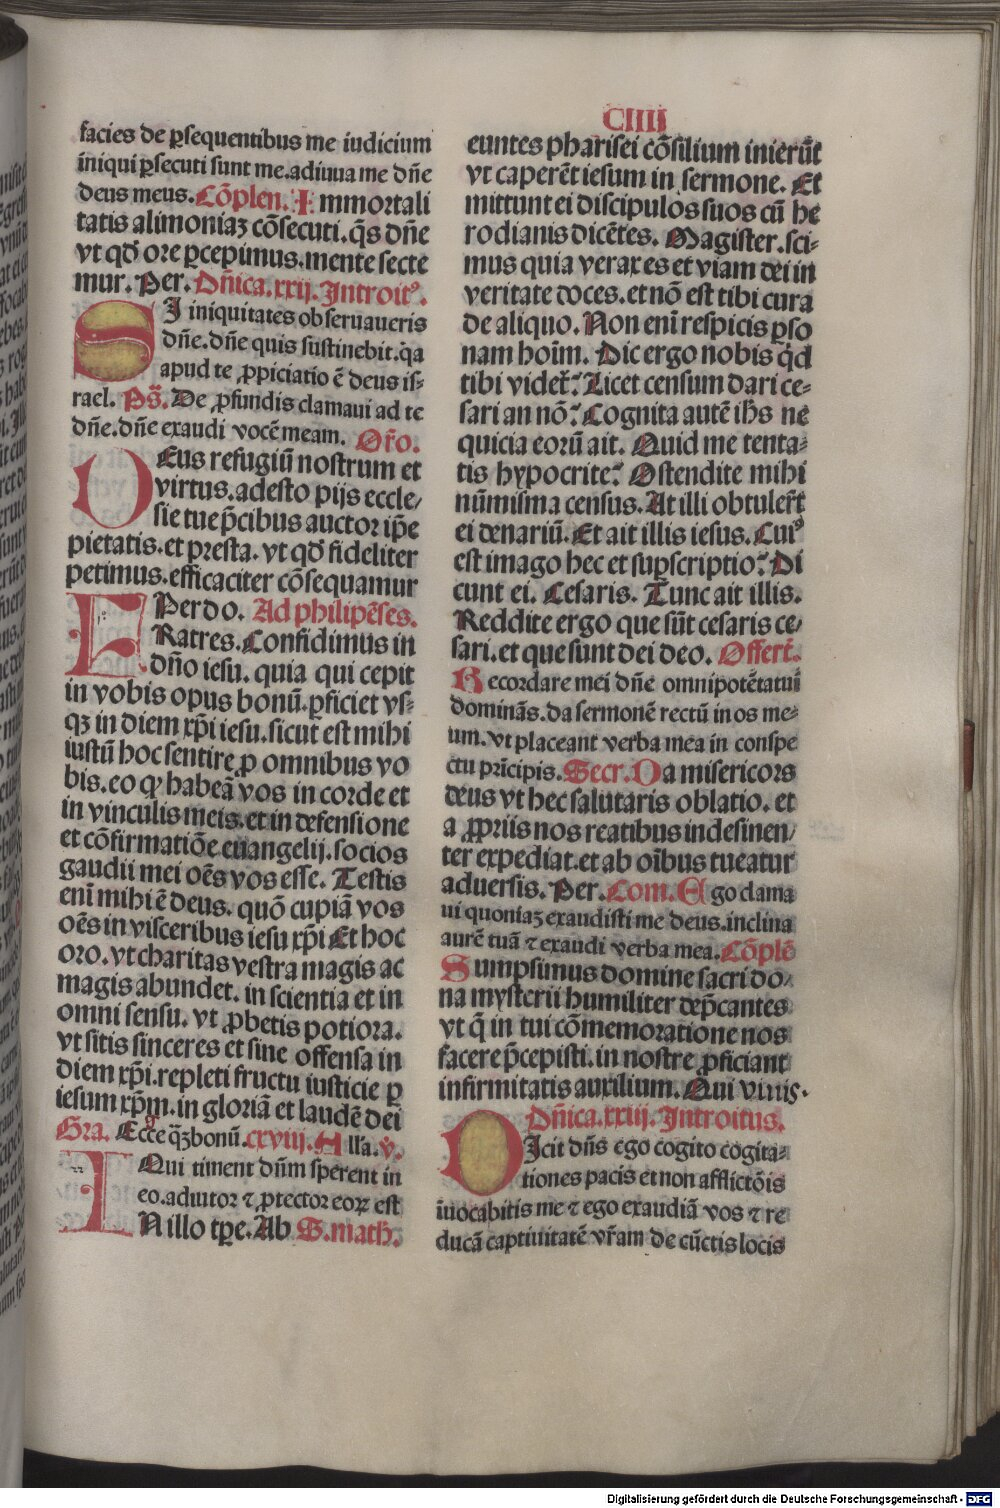 CIIII
facies de ꝑsequentibus me iudicium
iniqui ꝑsecuti sunt me.adiuua me dñe
deus meus. Cõplen. Immortali
tatis alimoniaꝫ cõsecuti.q̃s dñe
vt qđ ore ꝑcepimus.mente secte
mur. Per. Dñica.xxij. Introitꝰ.
SI iniquitates obseruaueris
dñe.dñe quis sustinebit.q̃a
apud te ꝓpiciatio ẽ deus is⸗
rael. Ps̃. De ꝓfundis clamaui ad te
dñe.dñe exaudi vocẽ meam. Or̃o.
DEus refugiũ nostrum et
virtus.adesto pijs eccle⸗
sie tue p̃cibus auctor ip̃e
pietatis.et presta.vt qđ fideliter
petimus.efficaciter cõsequamur
Per do. Ad philipẽses.
FRatres. Confidimus in
dño iesu. quia qui cepit
in vobis opus bonũ.ꝑficiet vs⸗
qꝫ in diem xp̃i iesu.sicut est mihi
iustũ hoc sentire ꝓ omnibus vo
bis.eo ꝙ habeã vos in corde et
in vinculis meis.et in defensione
et cõfirmatiõe euangelij.socios
gaudii mei oẽs vos esse. Testis
enĩ mihi ẽ deus. quõ cupiã vos
oẽs in visceribus iesu xp̃i Et hoc
oro.vt charitas vestra magis ac
magis abundet. in scientia et in
omni sensu. vt ꝓbetis potiora.
vt sitis sinceres et sine offensa in
diem xp̃i.repleti fructu iusticie ꝑ
iesum xp̃m.in gloriã et laudẽ dei
Gra. Ecce q̃ꝫ bonũ.cxviii. Alla. v̉.
Qui timent dñm sperent in
eo.adiutor ⁊ ꝓtector eoꝝ est
IN illo tp̃e. Ab S. math.
euntes pharisei cõsilium inierũt
vt caperẽt iesum in sermone. Et
mittunt ei discipulos suos cũ he
rodianis dicẽtes. Magister.sci⸗
mus quia verax es et viam dei in
veritate doces.et nõ est tibi cura
de aliquo. Non enĩ respicis ꝑso
nam hoĩm. Dic ergo nobis q̃d
tibi videt̃? Licet censum dari ce⸗
sari an nõ? Cognita autẽ ih̃s ne
quicia eorũ ait. Quid me tenta⸗
tis hypocrite? Ostendite mihi
nũmisma census. At illi obtuler̃t
ei denariũ. Et ait illis iesus. Cuiꝰ
est imago hec et supscriptio? Di
cunt ei. Cesaris. Tunc ait illis.
Reddite ergo que sũt cesaris ce⸗
sari.et que sunt dei deo. Offert̃.
Recordare mei dñe omnipotẽtatuĩ
dominãs.da sermonẽ rectũ in os me⸗
um.vt placeant verba mea in conspe
ctu prĩcipis. Secr. Da misericors
deus vt hec salutaris oblatio. et
a ꝓpriis nos reatibus indesinen⸗
ter expediat.et ab oĩbus tueatur
aduersis. Per. Com. Ego clama
ui quoniaꝫ exaudisti me deus.inclina
aurẽ tuã ⁊ exaudi verba mea. Cõplẽ
Sumpsimus domine sacri do⸗
na mysterii humiliter dep̃cantes
vt q̃ in tui cõmemoratione nos
facere p̃cepisti.in nostre ꝓficiant
infirmitatis auxilium. Qui viuis.
Dñica.xxiij. Introitus.
DIcit dñs ego cogito cogita⸗
tiones pacis et non afflictõis
ĩuocabitis me ⁊ ego exaudiã vos ⁊ re
ducã captiuitatẽ vr̃am de cũctis locis
Digitalisierung gefördert durch die Deutsche Forschungsgemeinschaft - DFG